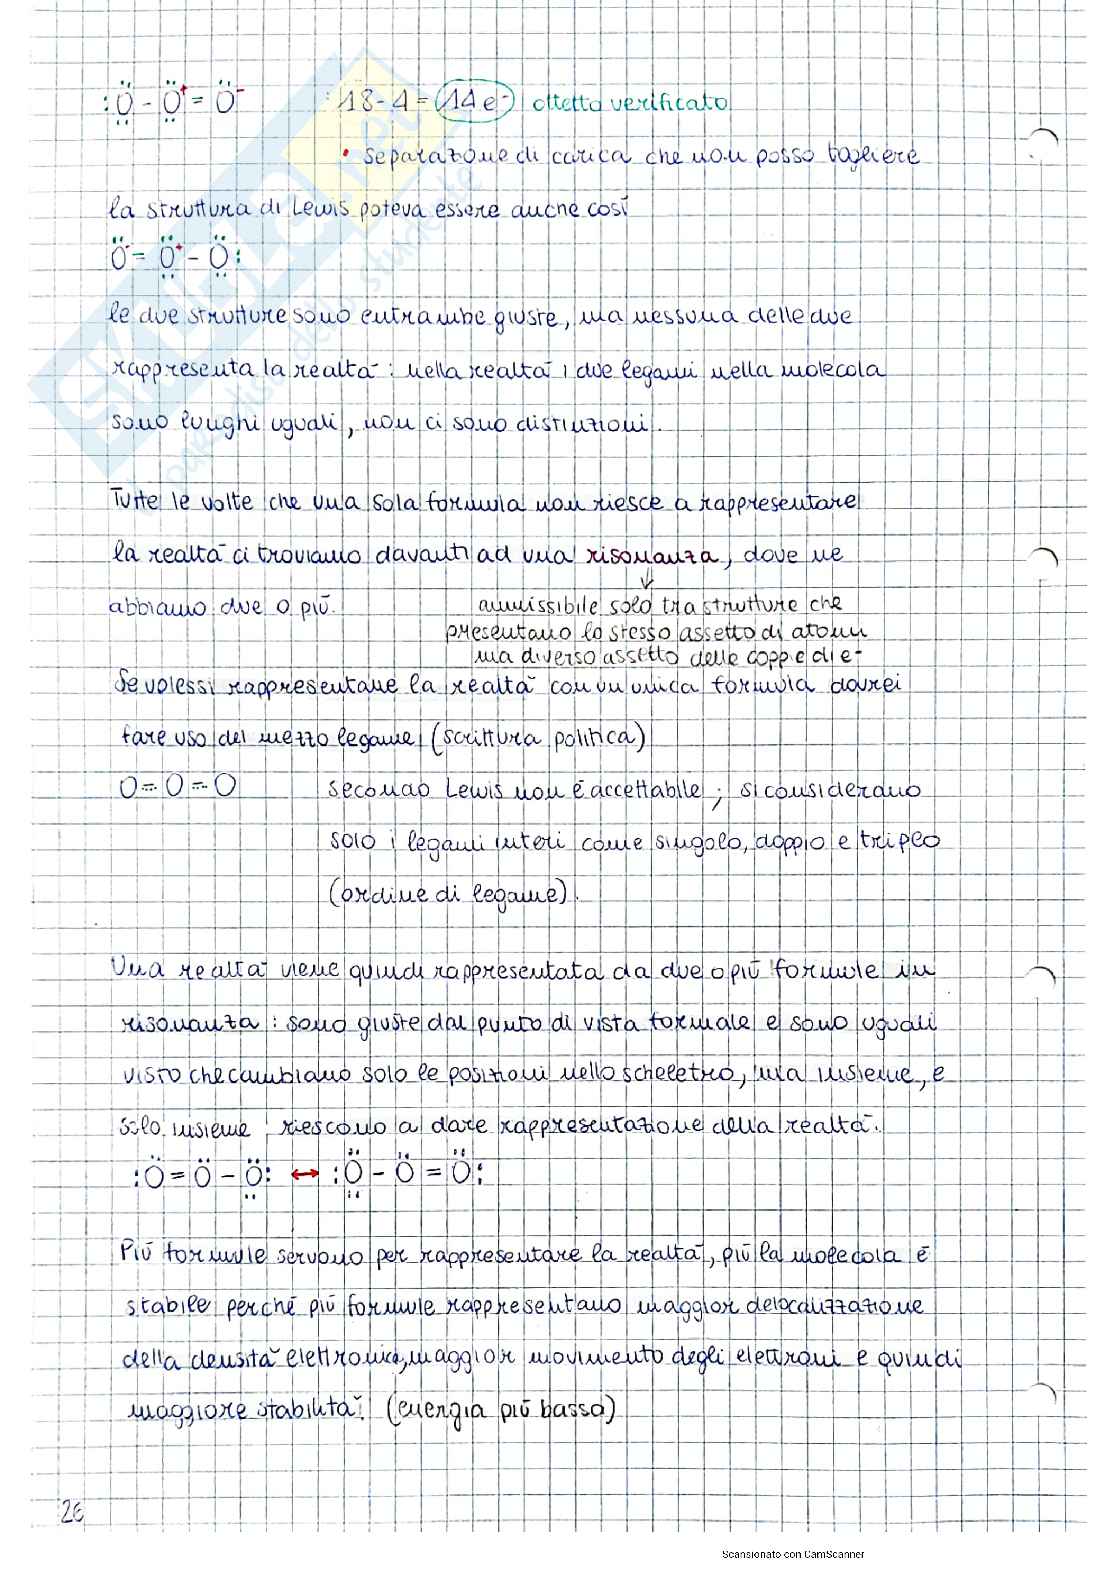 :Ö - Ö⁺ = Ö⁻ 18-4 = 14 e⁻ ottetto verificato
• separazione di carica che non posso togliere
la struttura di Lewis poteva essere anche così
Ö⁻ = Ö⁺ - Ö:
le due strutture sono entrambe giuste, ma nessuna delle due
rappresenta la realtà: nella realtà i due legami nella molecola
sono lunghi uguali, non ci sono distinzioni.
Tutte le volte che una sola formula non riesce a rappresentare
la realtà ci troviamo davanti ad una risonanza, dove ne
abbiamo due o più.
ammissibile solo tra strutture che
presentano lo stesso assetto di atomi
ma diverso assetto delle coppie di e-
Se volessi rappresentare la realtà con un unica formula dovrei
fare uso del mezzo legame (scrittura politica)
O=O=O secondo Lewis non è accettabile; si considerano
solo i legami interi come singolo, doppio e triplo
(ordine di legame).
Una realtà viene quindi rappresentata da due o più formule in
risonanza: sono giuste dal punto di vista formale e sono uguali
visto che cambiano solo le posizioni nello scheletro, ma insieme, e
solo insieme, riescono a dare rappresentazione della realtà.
:Ö = Ö - Ö: ↔ :Ö - Ö = Ö:
Più formule servono per rappresentare la realtà, più la molecola è
stabile perché più formule rappresentano maggior delocalizzazione
della densità elettronica, maggior movimento degli elettroni e quindi
maggiore stabilità. (energia più bassa)
26
Scansionato con CamScanner